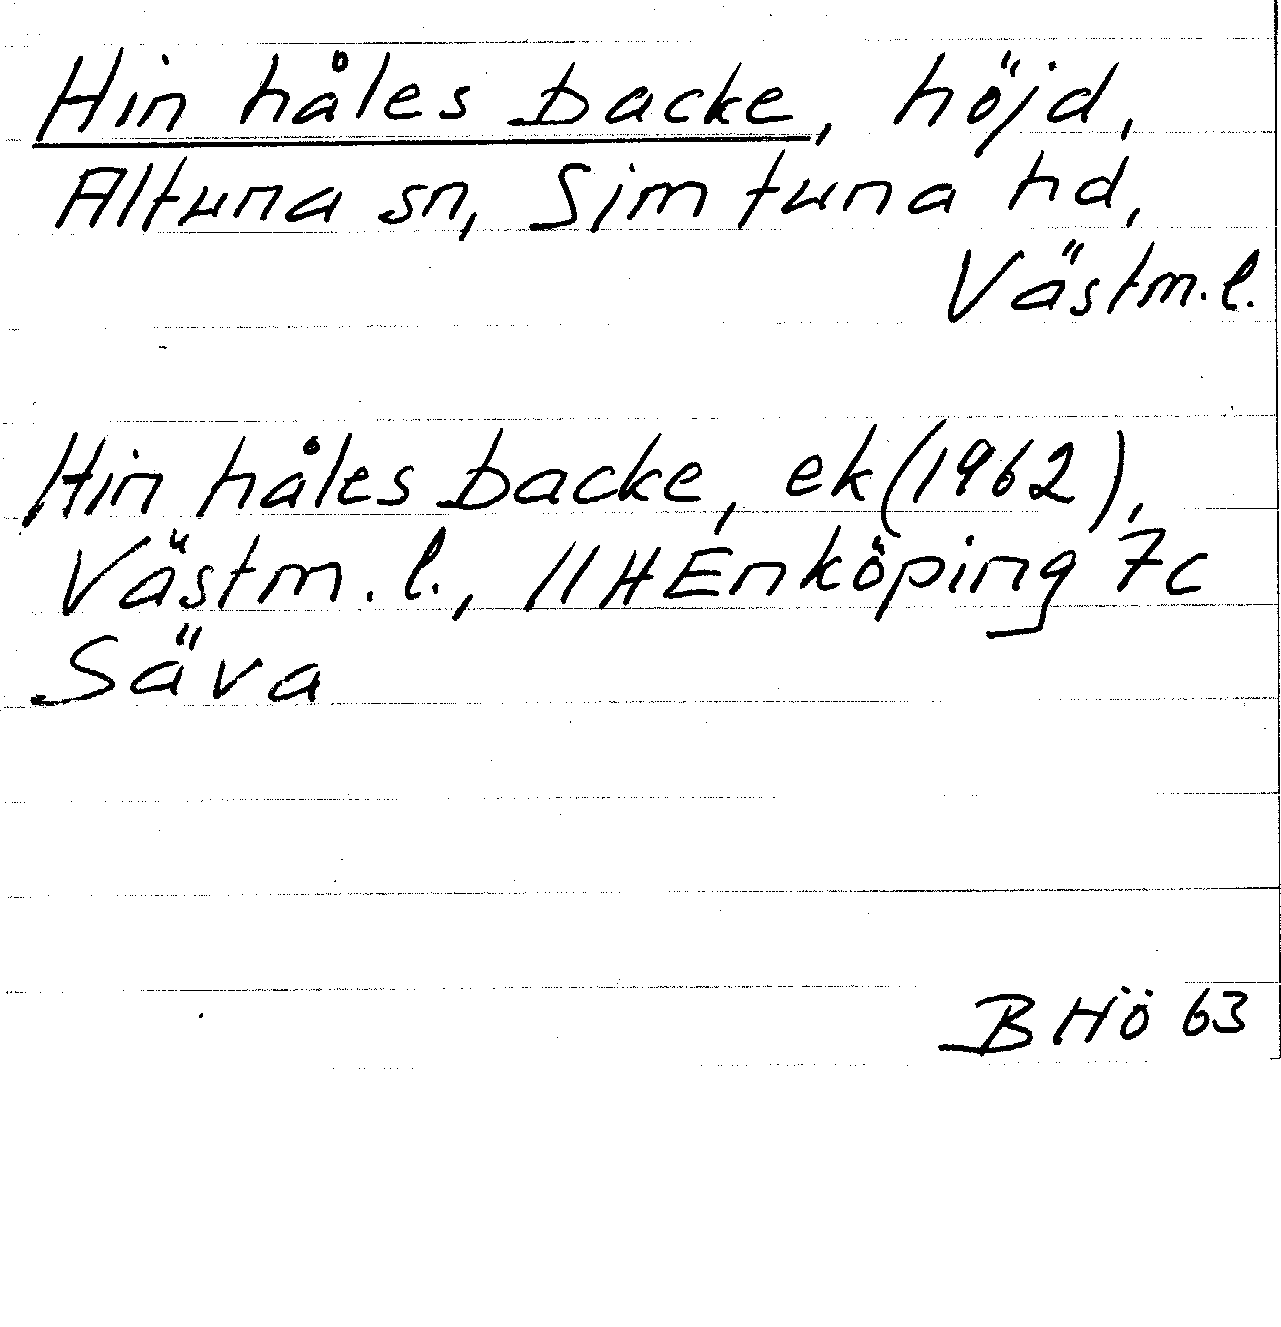 Hin håles backe, höjd,
Altuna sn, Simtuna hd,
Västm. l.
Hin håles backe, ek (1962),
Västm. l., 11H Enköping 7c
Säva
B Hö 63